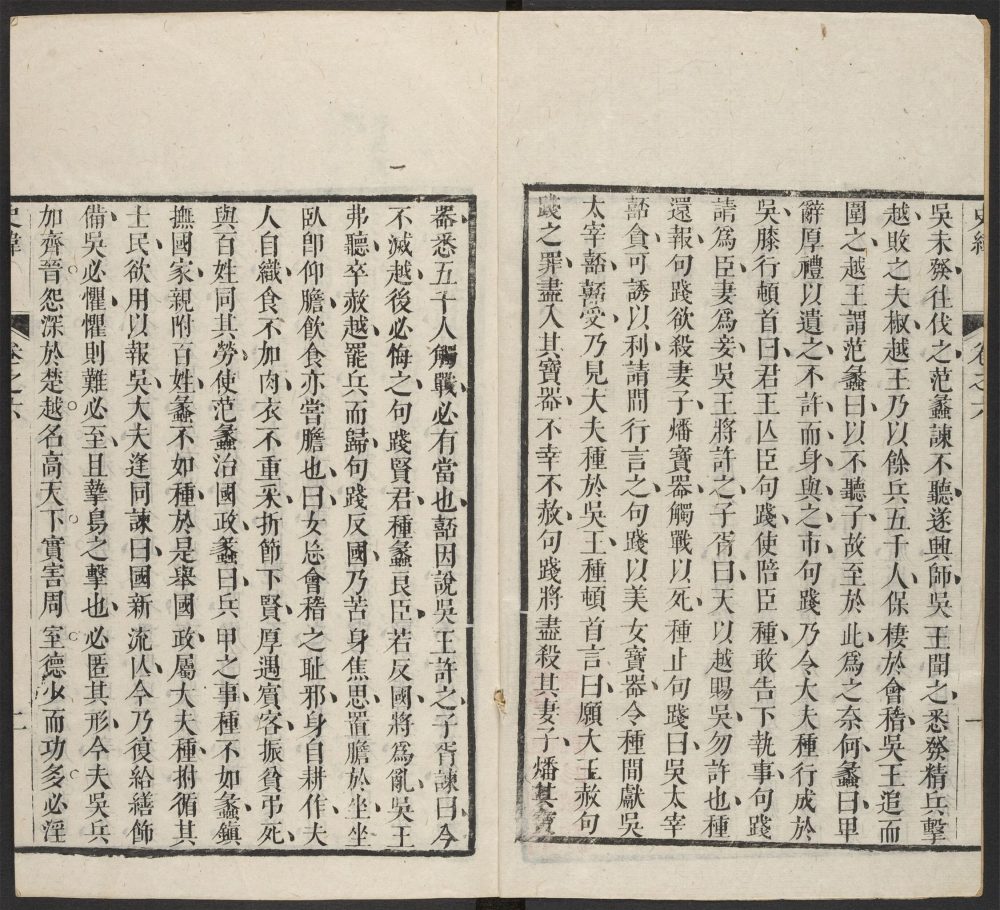 吳未發往伐之范蠡諫不聽遂興師吳王聞之悉發精兵擊
越敗之夫椒越王乃以餘兵五千人保棲於會稽吳王追而
圍之越王謂范蠡曰以不聽子故至於此為之奈何蠡曰卑
辭厚禮以遺之不許而身與之市句踐乃令大夫種行成於
吳膝行頓首曰君王亾臣句踐使陪臣種敢告下執事句踐
請為臣妻為妾吳王將許之子胥曰天以越賜吳勿許也種
還報句踐欲殺妻子燔寶器觸戰以死種止句踐曰吳太宰
嚭貪可誘以利請間行言之句踐以美女寶器令種間獻吳
太宰嚭嚭受乃見大夫種於吳王種頓首言曰願大王赦句
踐之罪盡入其寶器不幸不赦句踐將盡殺其妻子燔其寶
卷之六
一
器悉五千人觸戰必有當也嚭因說吳王許之子胥諫曰今
不滅越後必悔之句踐賢君種蠡良臣若反國將為亂吳王
弗聽卒赦越罷兵而歸句踐反國乃苦身焦思置膽於坐坐
臥卽仰膽飲食亦嘗膽也曰女忘會稽之耻邪身自耕作夫
人自織食不加肉衣不重采折節下賢厚遇賓客振貧弔死
與百姓同其勞使范蠡治國政蠡曰兵甲之事種不如蠡鎮
撫國家親附百姓蠡不如種於是舉國政屬大夫種拊循其
士民欲用以報吳大夫逢同諫曰國新流亾今乃復給繕飾
備吳必懼懼則難必至且摯鳥之擊也必匿其形今夫吳兵
加齊晉怨深於楚越名高天下實害周室德少而功多必淫
卷之六